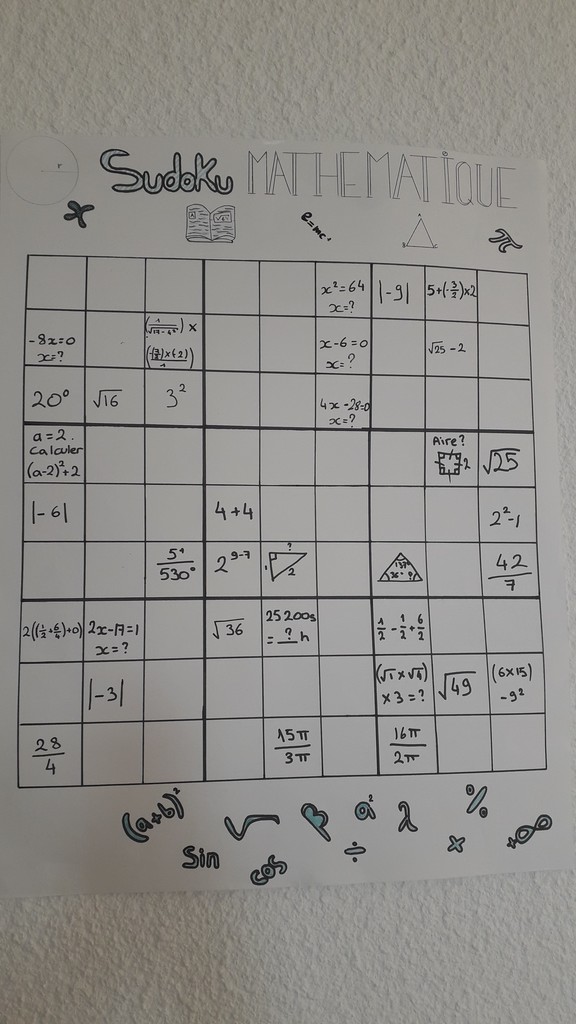 r
Sudoku MATHEMATIQUE
e=mc²
A
B C
π
x²=64
x=?
|-9|
5+(-3/2)×2
-8x=0
x=?
x-6=0
x=?
√25 -2
20°
√16
3²
4x-28=0
x=?
a=2.
Calculer
(a-2)²+2
Aire?
2
√25
|-6|
4+4
2²-1
5¹/530°
2⁹⁻⁷
?
1
2
137°
36°
?
42/7
2((1/2+6/4)+0)
2x-17=1
x=?
√36
25200s
=_?_h
1/2-1/2+6/2
|-3|
(√1×√4)
×3=?
√49
(6×15)
-9²
28/4
15π/3π
16π/2π
(a+b)²
√
a²
λ
%
+∞
Sin
cos
÷
×